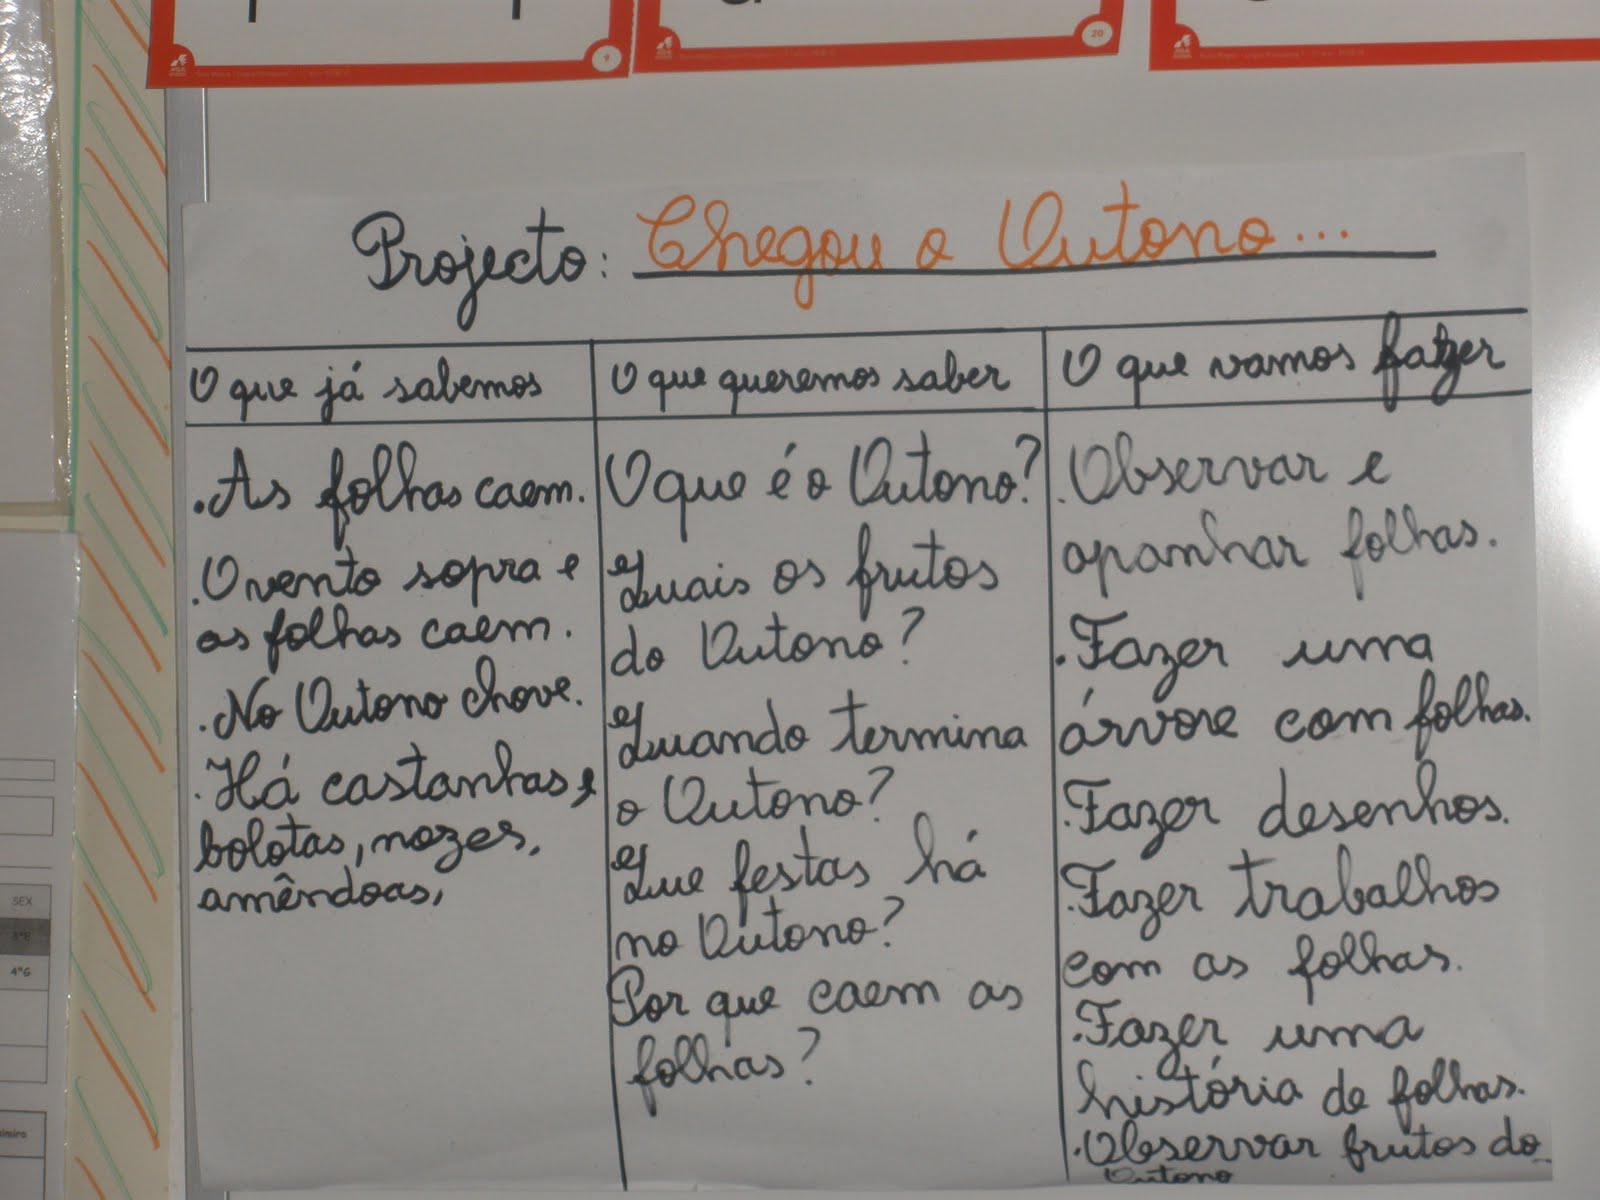 9
20
Projecto: Chegou o Outono...
O que já sabemos
O que queremos saber
O que vamos fazer
.As folhas caem.
.O vento sopra e
as folhas caem.
.No Outono chove.
.Há castanhas,
bolotas, nozes,
amêndoas,
O que é o Outono?
Quais os frutos
do Outono?
Quando termina
o Outono?
Que festas há
no Outono?
Por que caem as
folhas?
.Observar e
apanhar folhas.
.Fazer uma
árvore com folhas.
.Fazer desenhos.
.Fazer trabalhos
com as folhas.
.Fazer uma
história de folhas.
.Observar frutos do
Outono
SEX
3ºE
4ºG